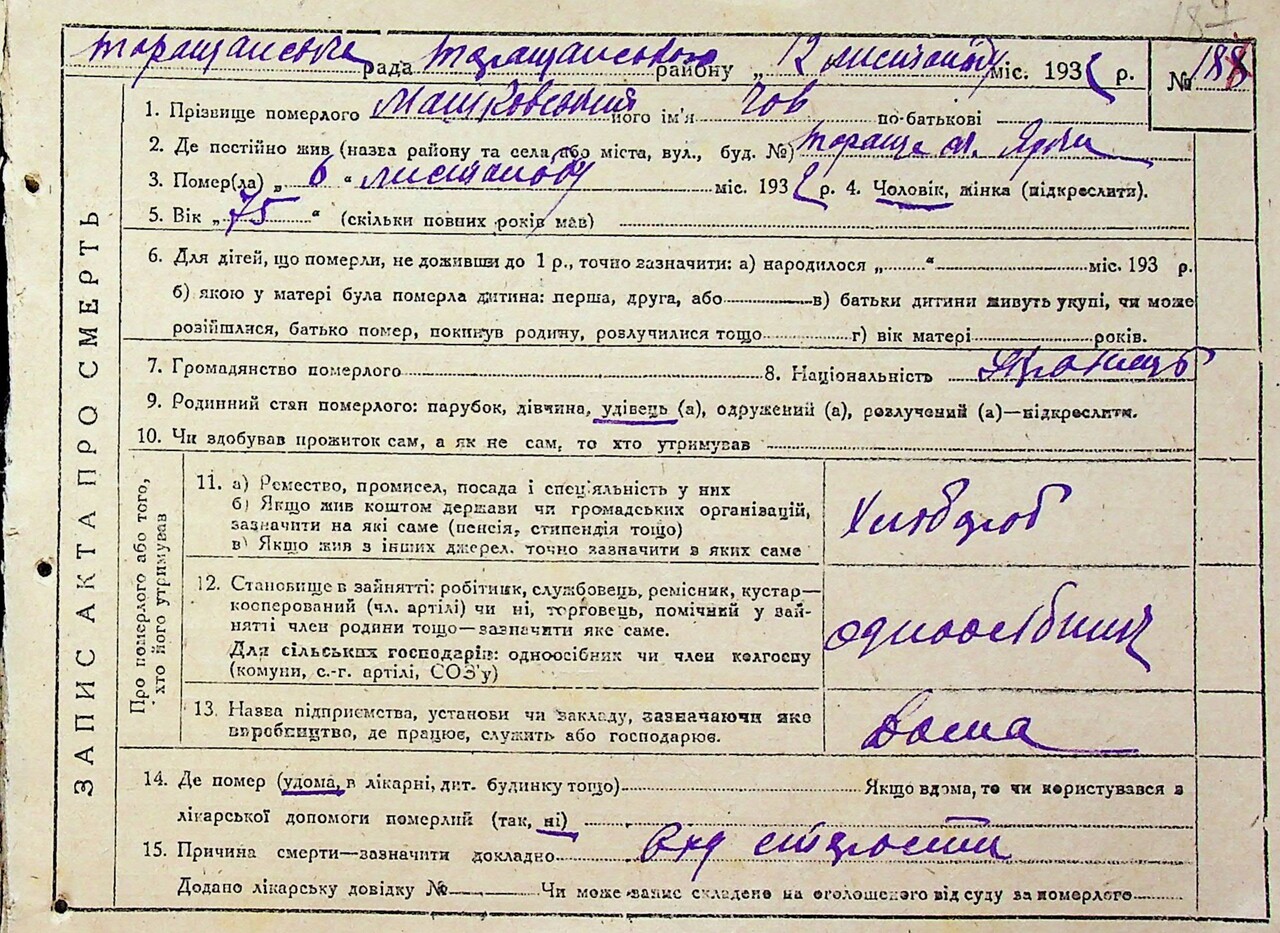 187
Таращанська рада Таращанського району „ 12 листопаду міс. 1932 р. № 188
1. Прізвище померлого Машковський його ім'я Йов по-батькові
2. Де постійно жив (назва району та села або міста, вул., буд. №) Тараща
3. Помер(ла) „ 6 “ листопаду міс. 1932 р. 4. Чоловік, жінка (підкреслити).
5. Вік „ 75 “ (скільки повних років мав)
6. Для дітей, що померли, не доживши до 1 р., точно зазначити: а) народилося „ “ міс. 193 р.
б) якою у матері була померла дитина: перша, друга, або в) батьки дитини живуть укупі, чи може
розійшлися, батько помер, покинув родину, розлучилися тощо г) вік матері років.
7. Громадянство померлого 8. Національність Українець
9. Родинний стан померлого: парубок, дівчина, удівець (а), одружений (а), розлучений (а)—підкреслити.
10. Чи здобував прожиток сам, а як не сам, то хто утримував
ЗАПИС АКТА ПРО СМЕРТЬ
Про померлого або того,
хто його утримував
11. а) Ремество, промисел, посада і спец'яльність у них
б) Якщо жив коштом держави чи громадських організацій,
зазначити на які саме (пенсія, стипендія тощо)
в) Якщо жив з інших джерел. точно зазначити з яких саме
Хлібороб
12. Становище в зайнятті: робітник, службовець, ремісник, кустар—
косперований (чл. артілі) чи ні, торговець, помічний у зай-
нятті член родини тощо—зазначити яке саме.
Для сільських господарів: одноосібних чи член колгоспу
(комуни, с.-г. артілі, СОЗ'у)
одноосібник
13. Назва підприємства, установи чи закладу, зазначаючи яке
виробництво, де працює, служить або господарює.
Дома
14. Де помер (удома, в лікарні, дит. будинку тощо) Якщо вдома, то чи користувався з
лікарської допомоги померлий (так, ні)
15. Причина смерти—зазначити докладно від старости
Додано лікарську довідку № Чи може запис складено на оголошеного від суду за померлого